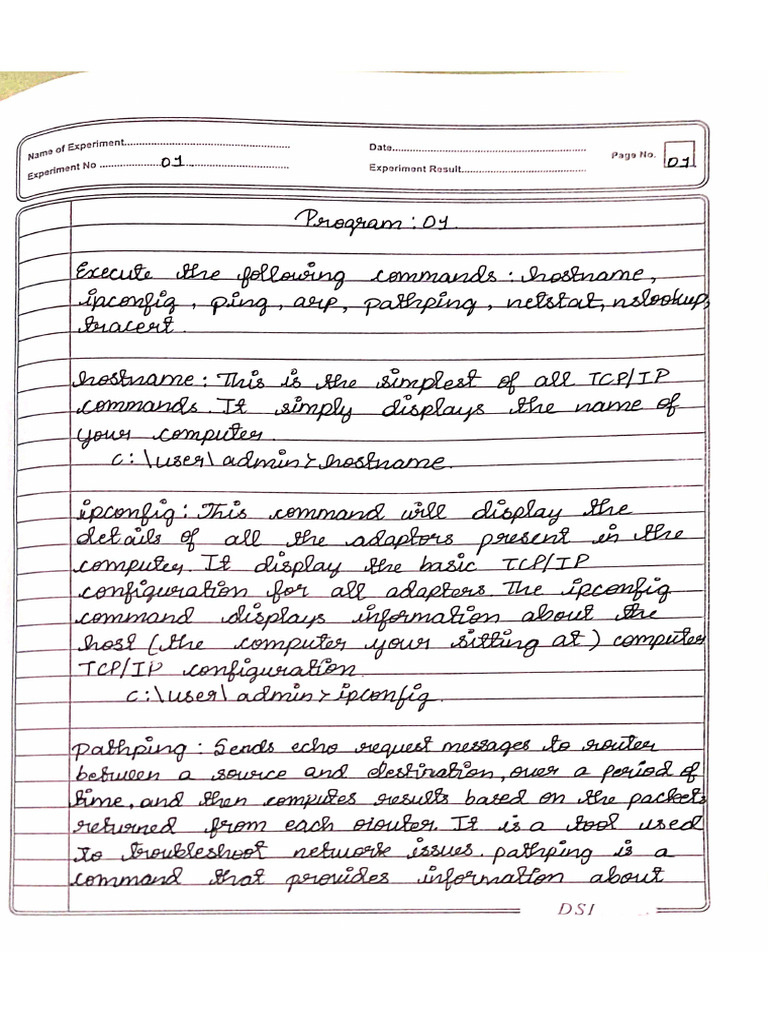 Name of Experiment........ Date........
Page No. 01
Experiment No ........ 01 ........ Experiment Result........
Program : 01
Execute the following commands : hostname,
ipconfig, ping, arp, pathping, netstat, nslookup,
tracert.
hostname : This is the simplest of all TCP/IP
commands. It simply displays the name of
your computer.
c:\user\admin>hostname.
ipconfig : This command will display the
details of all the adaptors present in the
computer. It display the basic TCP/IP
configuration for all adapters. The ipconfig
command displays information about the
host (the computer your sitting at) computer
TCP/IP configuration.
c:\user\admin>ipconfig.
pathping : Sends echo request messages to router
between a source and destination, over a period of
time, and then computes results based on the packets
returned from each router. It is a tool used
to troubleshoot network issues. pathping is a
command that provides information about
DSI